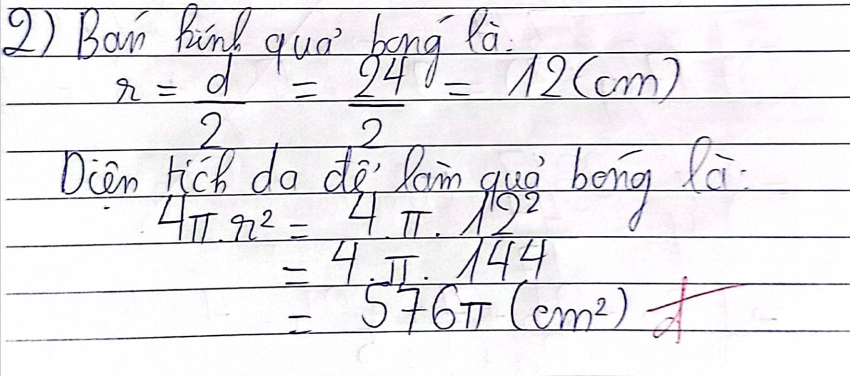 2) Bán kính quả bóng là:
r = d/2 = 24/2 = 12 (cm)
Diện tích da để làm quả bóng là:
4π.r² = 4.π.12²
= 4.π.144
= 576π (cm²) đ